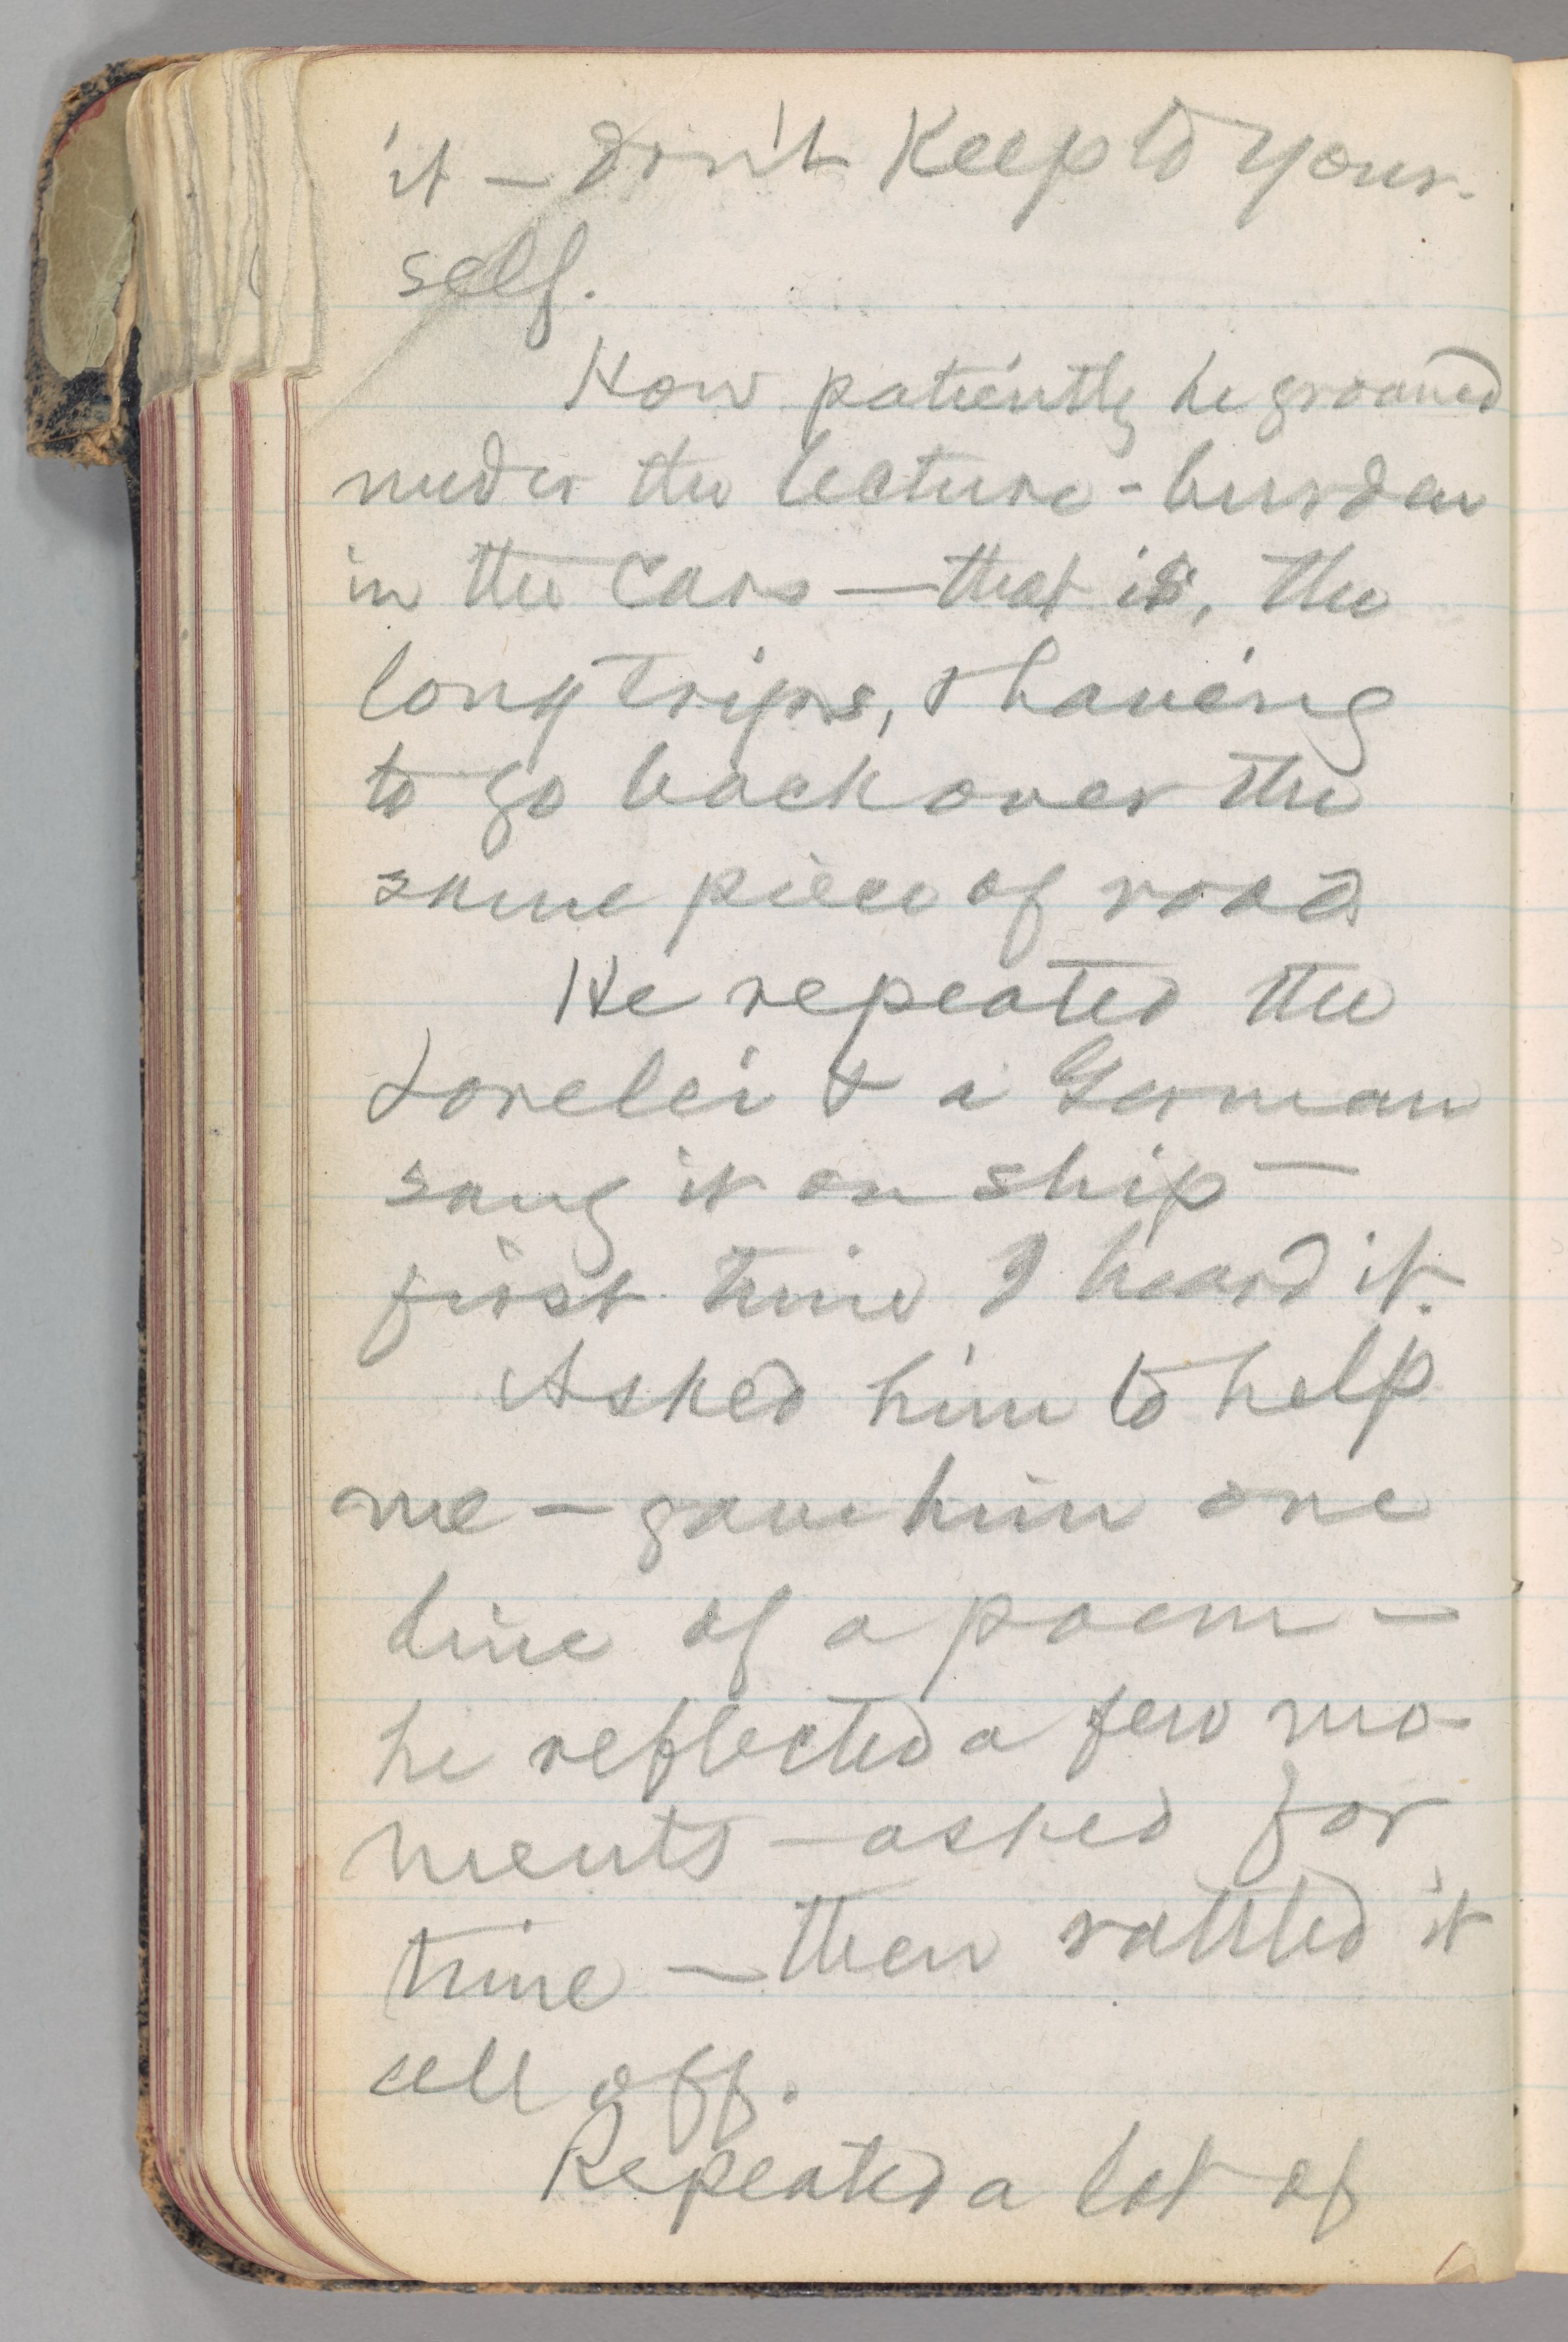 it — don't keep to your-
self.
How patiently he groaned
under the lecture-burden
in the cars — that is, the
long trips, & having
to go back over the
same piece of road
He repeated the
Lorelei & a German
sang it on ship —
first time I heard it.
Asked him to help
me — gave him one
line of a poem —
he reflected a few mo-
ments — asked for
time — then rattled it
all off.
Repeated a lot of